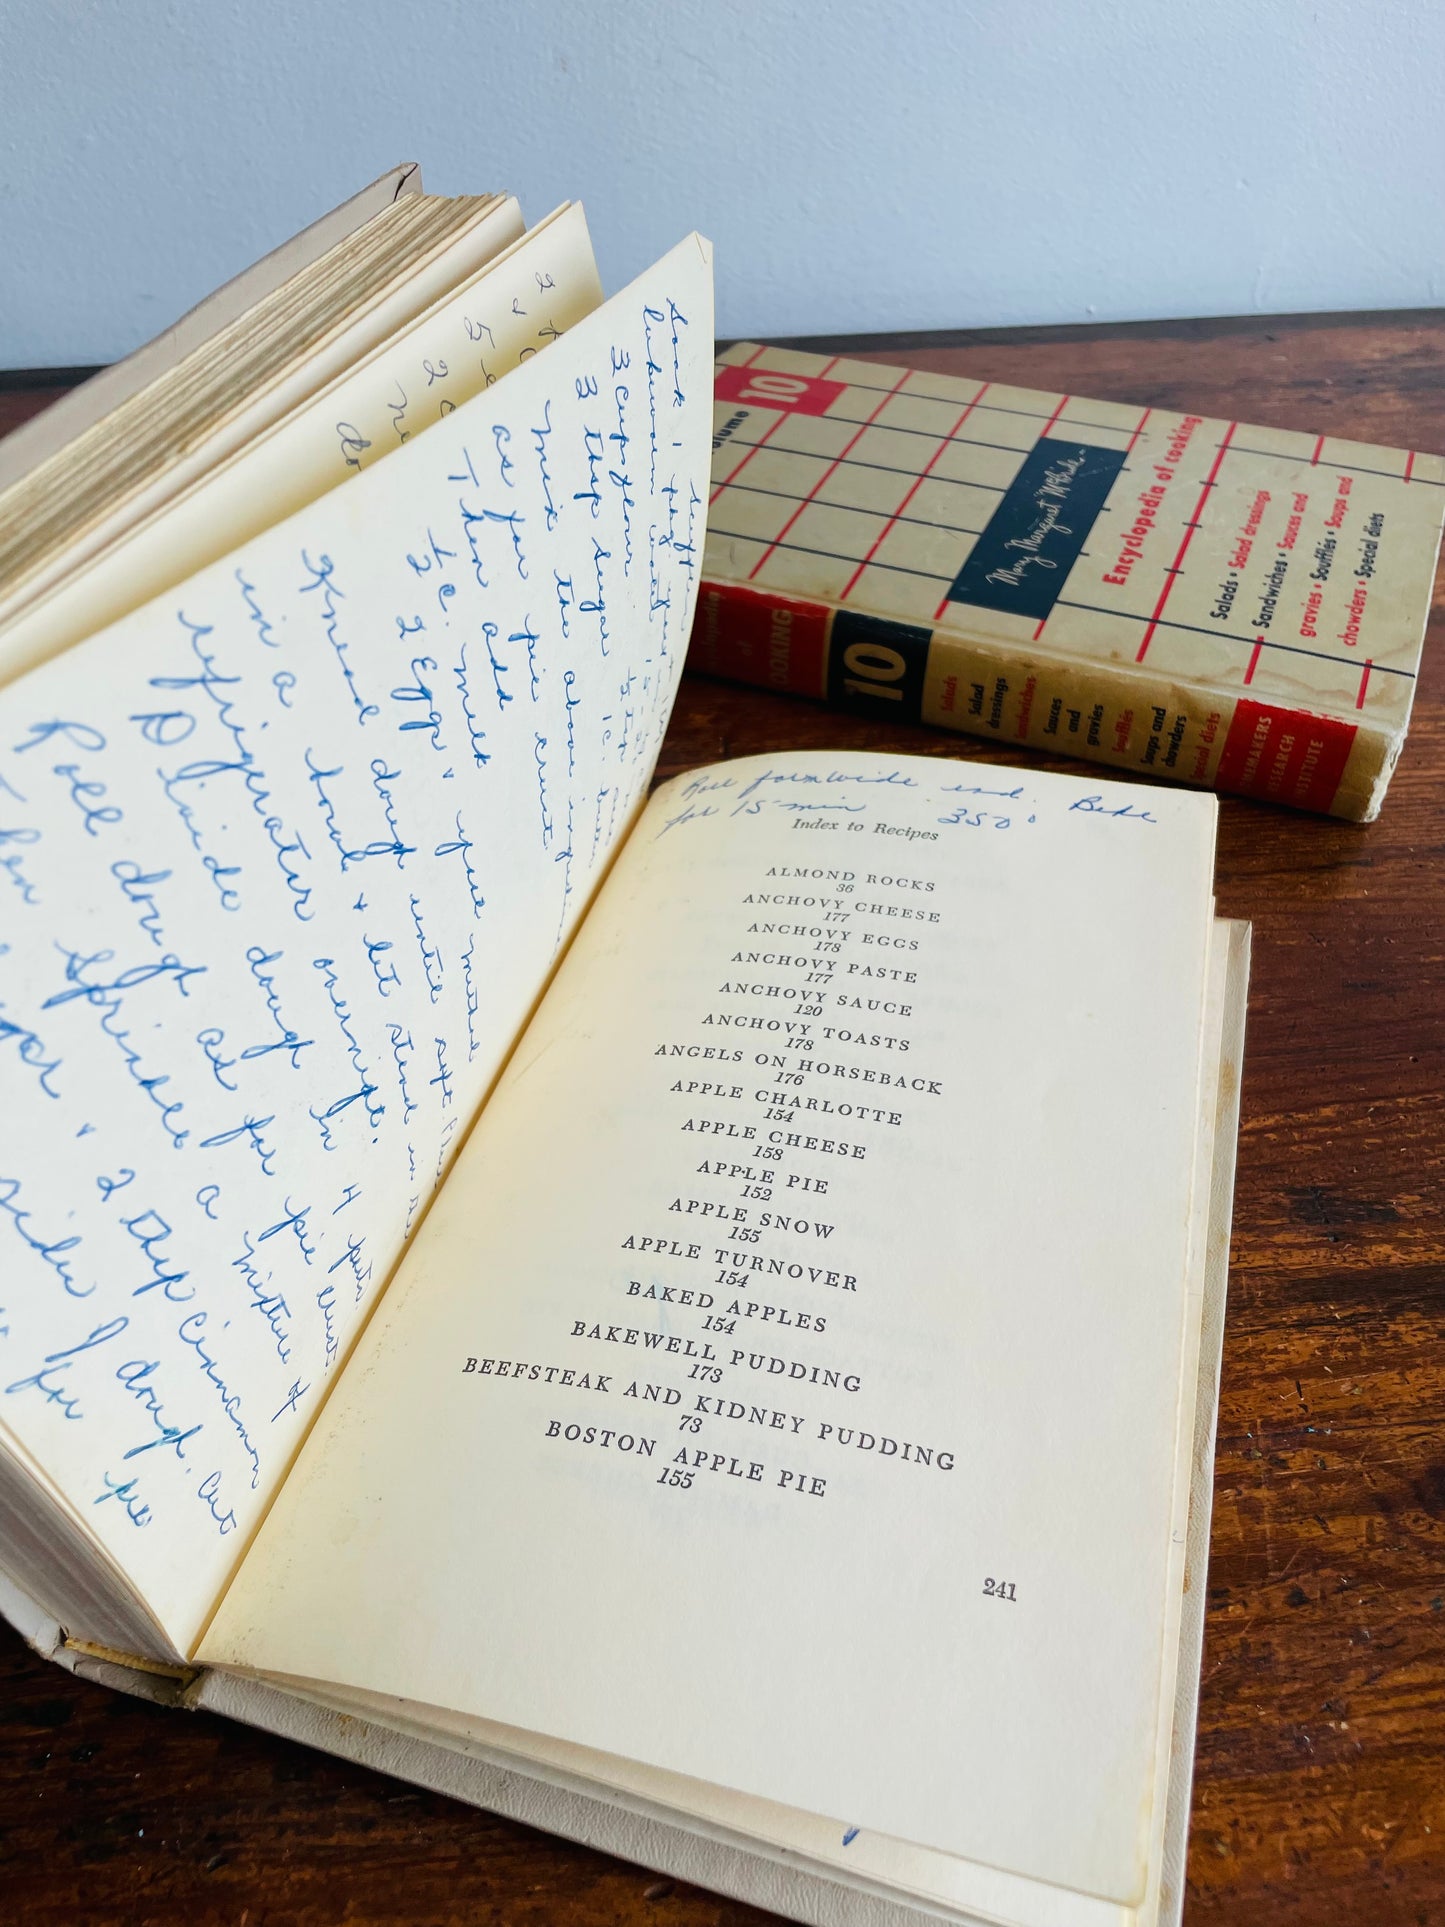 2
5
2 c
Soak 1
lukewarm
3 cups flour
3 tbsp sugar ½ tsp
Mix the above ingredients
as for pie crust
Then add
½ c. milk
2 Eggs & yeast mixture
Knead dough until soft. Place
in a bowl & let stand in the
refrigerator overnight.
Divide dough in 4 parts.
Roll dough as for pie crust.
Then Sprinkle a mixture of
sugar & 2 tbsp cinnamon
dough. Cut
Roll from wide end. Bake
for 15 min 350°
Index to Recipes
ALMOND ROCKS
36
ANCHOVY CHEESE
177
ANCHOVY EGGS
178
ANCHOVY PASTE
177
ANCHOVY SAUCE
120
ANCHOVY TOASTS
178
ANGELS ON HORSEBACK
176
APPLE CHARLOTTE
154
APPLE CHEESE
158
APPLE PIE
152
APPLE SNOW
155
APPLE TURNOVER
154
BAKED APPLES
154
BAKEWELL PUDDING
173
BEEFSTEAK AND KIDNEY PUDDING
73
BOSTON APPLE PIE
155
241
Volume 10
Mary Margaret McBride
Encyclopedia of cooking
Salads • Salad dressings
Sandwiches • Sauces and
gravies • Soufflés • Soups and
chowders • Special diets
of
COOKING
10
Salads
Salad
dressings
Sandwiches
Sauces
and
gravies
Soufflés
Soups and
chowders
Special diets
HOMEMAKERS
RESEARCH
INSTITUTE